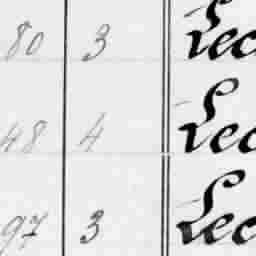 80 3 Lec
48 4 Lec
97 3 Lec